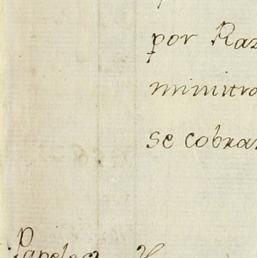 por Raz
ministra
se cobran
Papeles